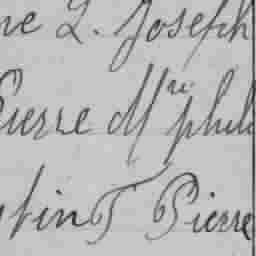 ne L. Joseph
Pierre Mrie phil
stin T Pierre